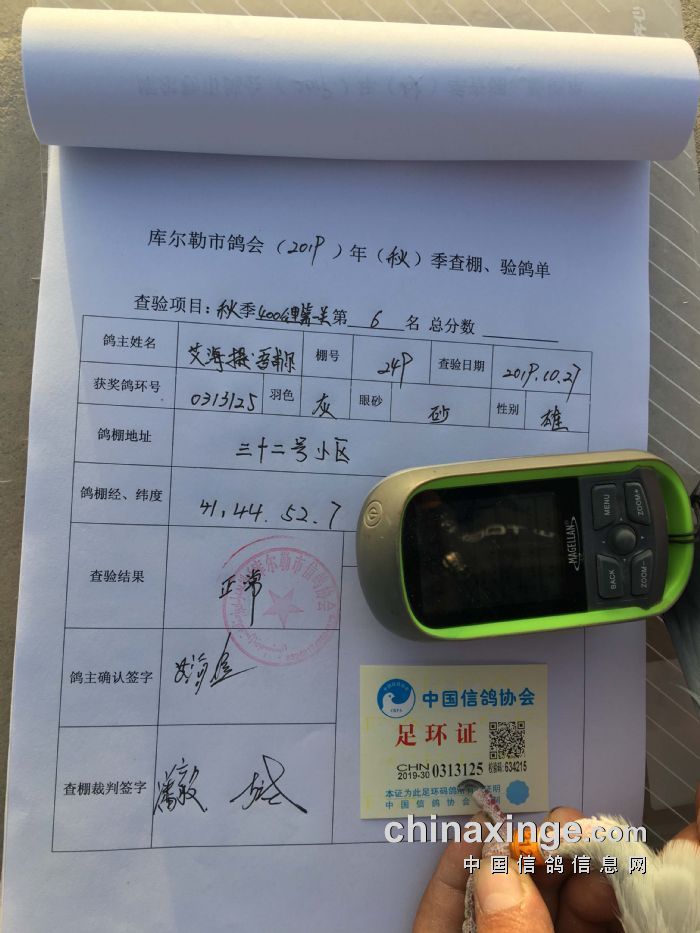 库尔勒市鸽会（2019）年（秋）季查棚、验鸽单
查验项目：秋季400公里 第 6 名 总分数
鸽主姓名 艾海提·吾 棚号 249 查验日期 2019.10.27
获奖鸽环号 0313125 羽色 灰 眼砂 砂 性别 雄
鸽棚地址 三十二号小区
鸽棚经、纬度 41.44.52.7
查验结果 正常
库尔勒市信鸽协会
鸽主确认签字
查棚裁判签字
MENU
ZOOM+
BACK
ZOOM-
MAGELLAN
中国信鸽协会
足环证
CHN
2019-30 0313125 校验码: 634215
本证为此足环码鸽 明
中国信鸽协会 制
chinaxinge.com
中国信鸽信息网